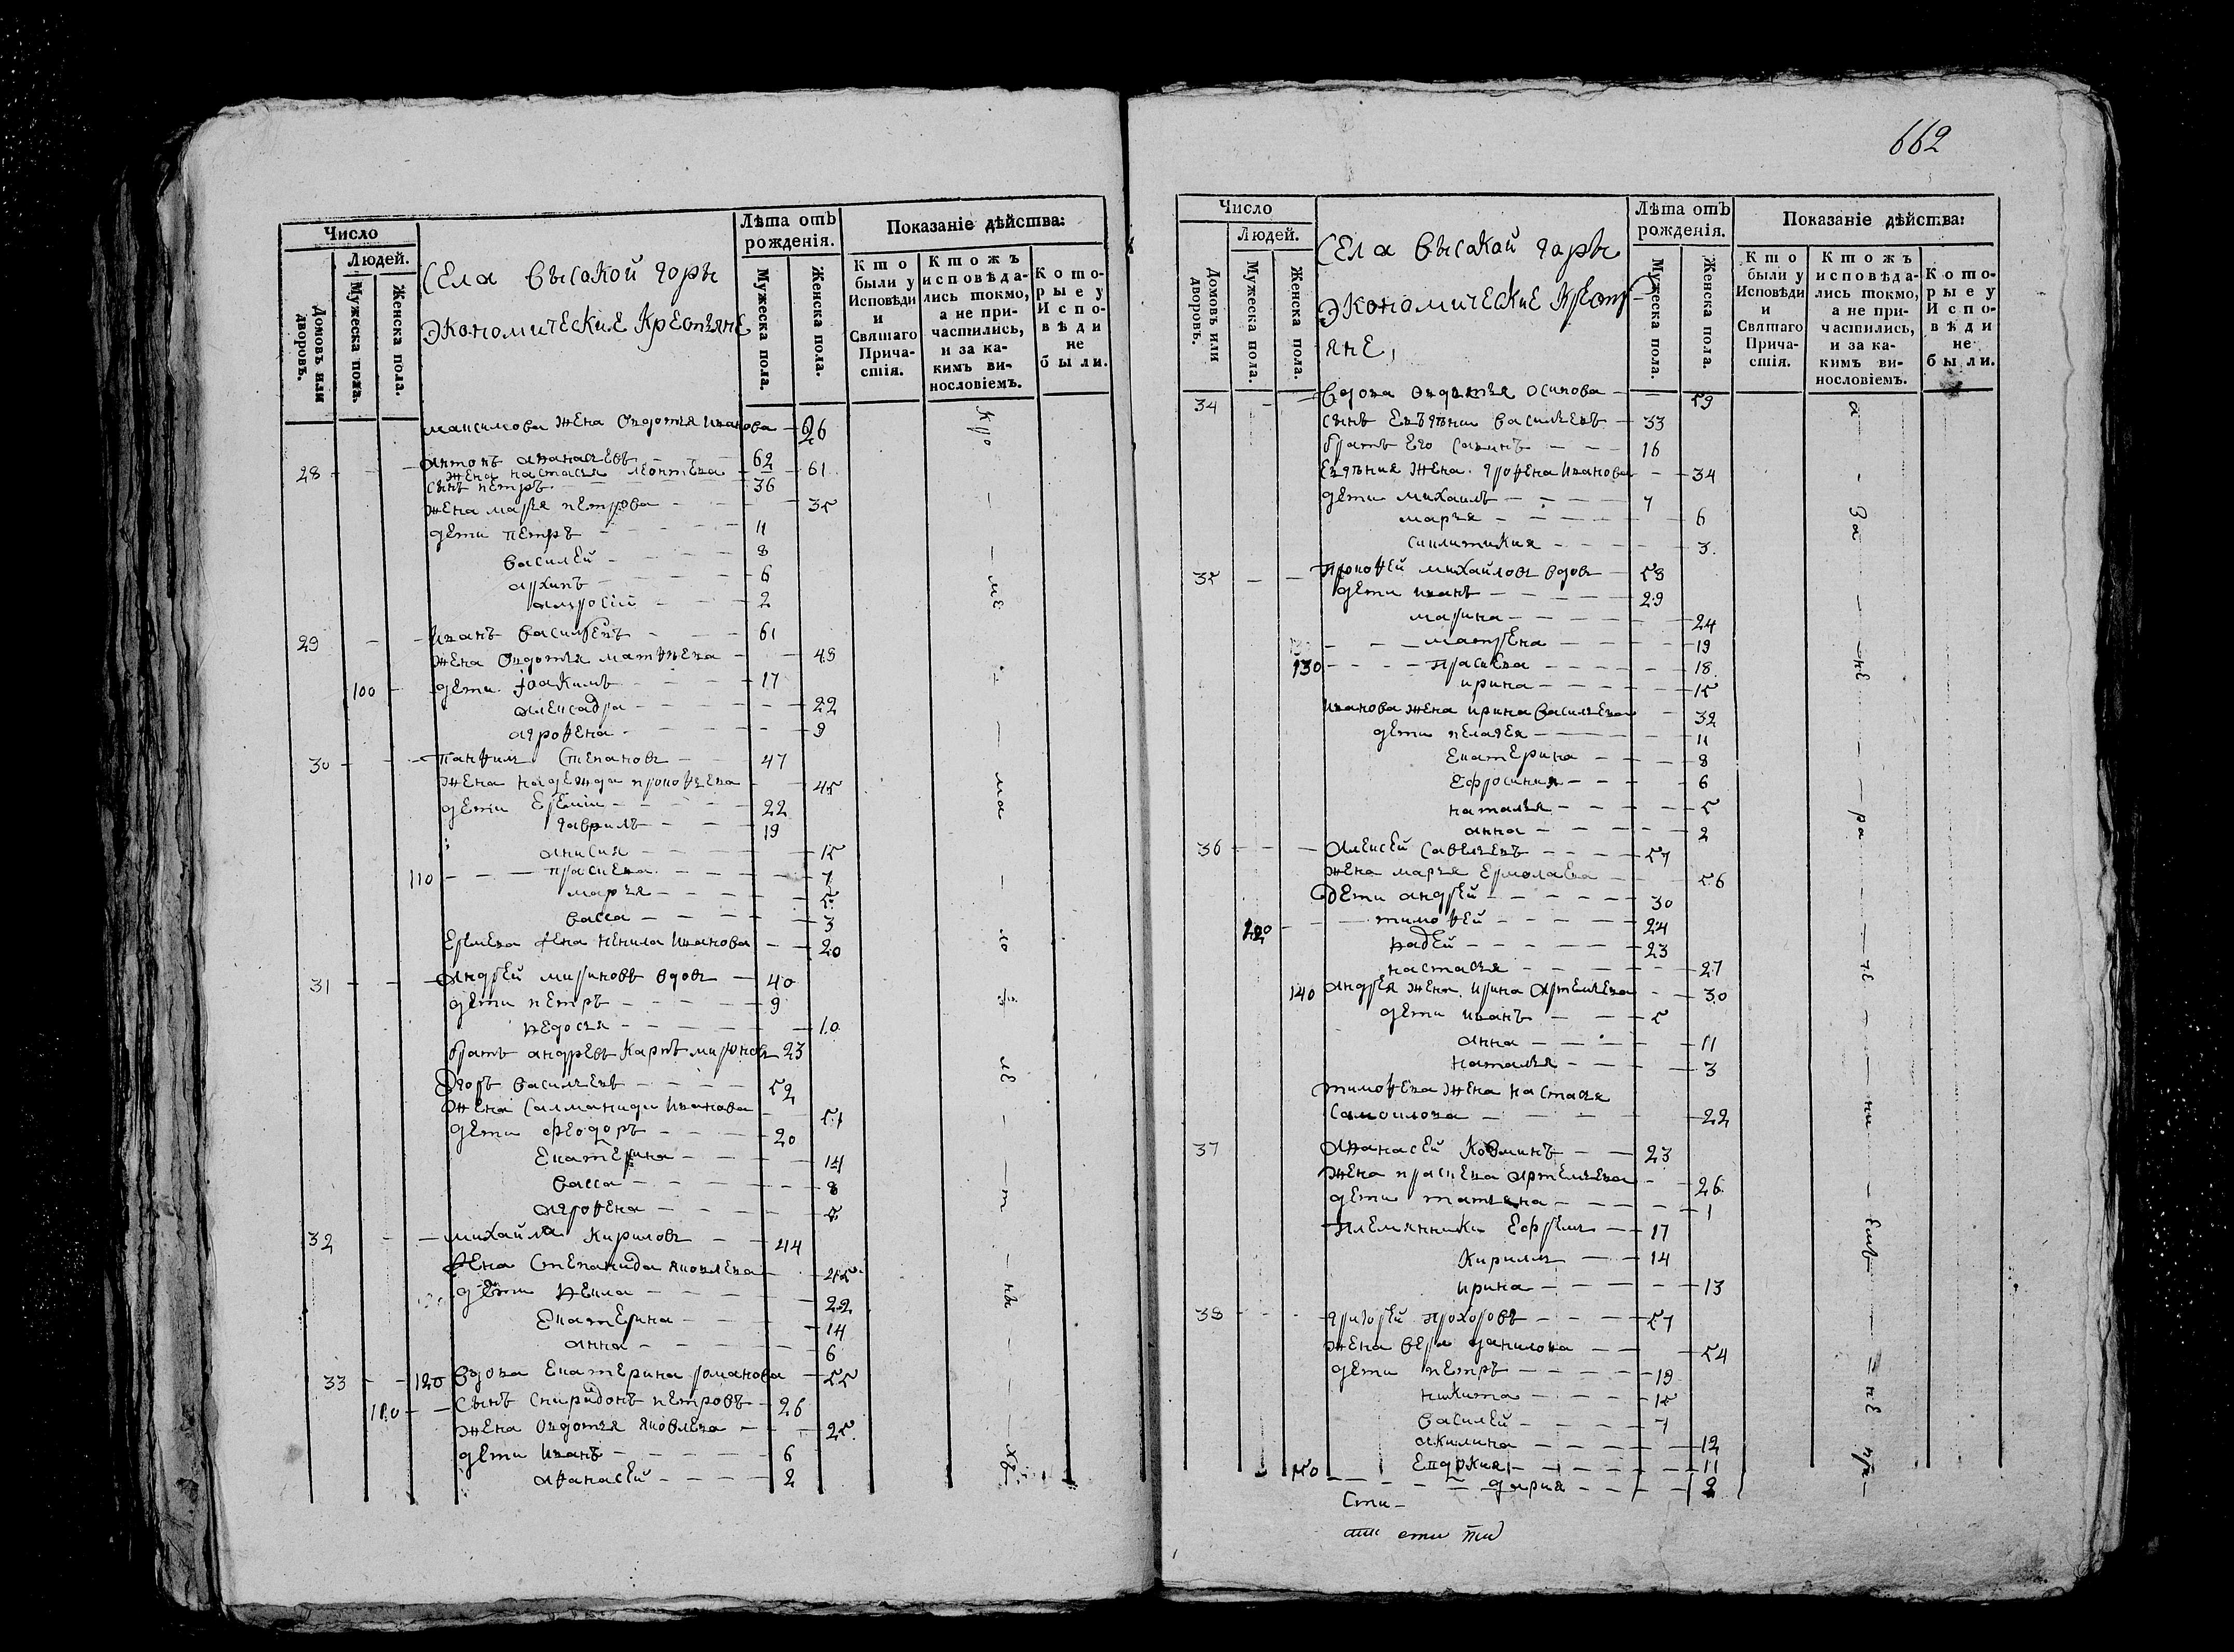 662
Число
Людей.
Домовъ или дворовъ.
Мужеска пола.
Женска пола.
Села высакой горы
экономические крестьяне
Лѣта отъ рожденія.
Мужеска пола.
Женска пола.
Показаніе дѣйства:
Кто были у Исповѣди и Святаго Причастія.
Ктожъ исповѣдались токмо, а не причастились, и за какимъ винословіемъ.
Которые у Исповѣди не были.
максимова жена Овдотья иванова 26
28 Антонъ Афанасьевъ 62
жена настасья леонтьева 61
сынъ петръ 36
жена марья петрова 35
дети петръ 11
василей 8
архипъ 6
2
29 Иванъ васильевъ 61
жена Овдотья матвѣева 48
100 дети Іоакимъ 17
алексадра 22
агрофена 9
30 Панфилъ Степановъ 47
жена надежда прокофьева 45
дети Еремѣи 22
гаврилъ 19
анисия 15
110 праскева 7
марья 5
васса 3
Еремеева жена ненила Иванова 20
31 Андрей мироновъ вдовъ 40
дети петръ 9
федосья 10
братъ андреевъ карпъ мироновъ 23
Егоръ васильевъ 52
жена Саламанида Иванова 51
дети феодоръ 20
Екатерина 14
васса 8
агрофена 5
32 михайла кириловъ 44
жена Степанида яковлева 45
дети фекла 22
Екатерина 14
анна 6
33 120 вдова Екатерина романова 55
110 сынъ Спиридонъ петровъ 26
жена Овдотья яковлева 25
дети иванъ 6
афанасей 2
Число
Людей.
Домовъ или дворовъ.
Мужеска пола.
Женска пола.
Села высакой гары
экономические крестьяне,
Лѣта отъ рожденія.
Мужеска пола.
Женска пола.
Показаніе дѣйства:
Кто были у Исповѣди и Святаго Причастія.
Ктожъ исповѣдались токмо, а не причастились, и за какимъ винословіемъ.
Которые у Исповѣди не были.
34 вдова овдотья осипова 59
сынъ Евъгѣни васильевъ 33
братъ Его савинъ 16
Евгѣния жена грофена Иванова 34
дети михаилъ 7
марья 6
3
35 Прокофей михайловъ вдовъ 58
дети иванъ 29
марина 24
матрена 19
130 праскева 18
ирина 15
иванова жена ирина васильева 32
дети пелагея 11
Екатерина 8
Ефросиния 6
наталья 5
анна 2
36 алексей савельевъ 57
жена марья Ермолаева 56
дети андрей 30
120 тимофей 24
фадей 23
настасья 27
140 андрея жена ирина артемьева 30
дети иванъ 5
анна 11
наталья 3
тимофева жена настасья
самоилова 22
37 афанасей козминъ 23
жена праскева артемьева 26
дети татьяна 1
племянники Ефремъ 17
кирилъ 14
ирина 13
38 григорей прохоровъ 57
жена вера данилова 54
дети петръ 19
никита 15
василей 7
акилина 12
Евдокия 11
150 дария 2
Сти
сти